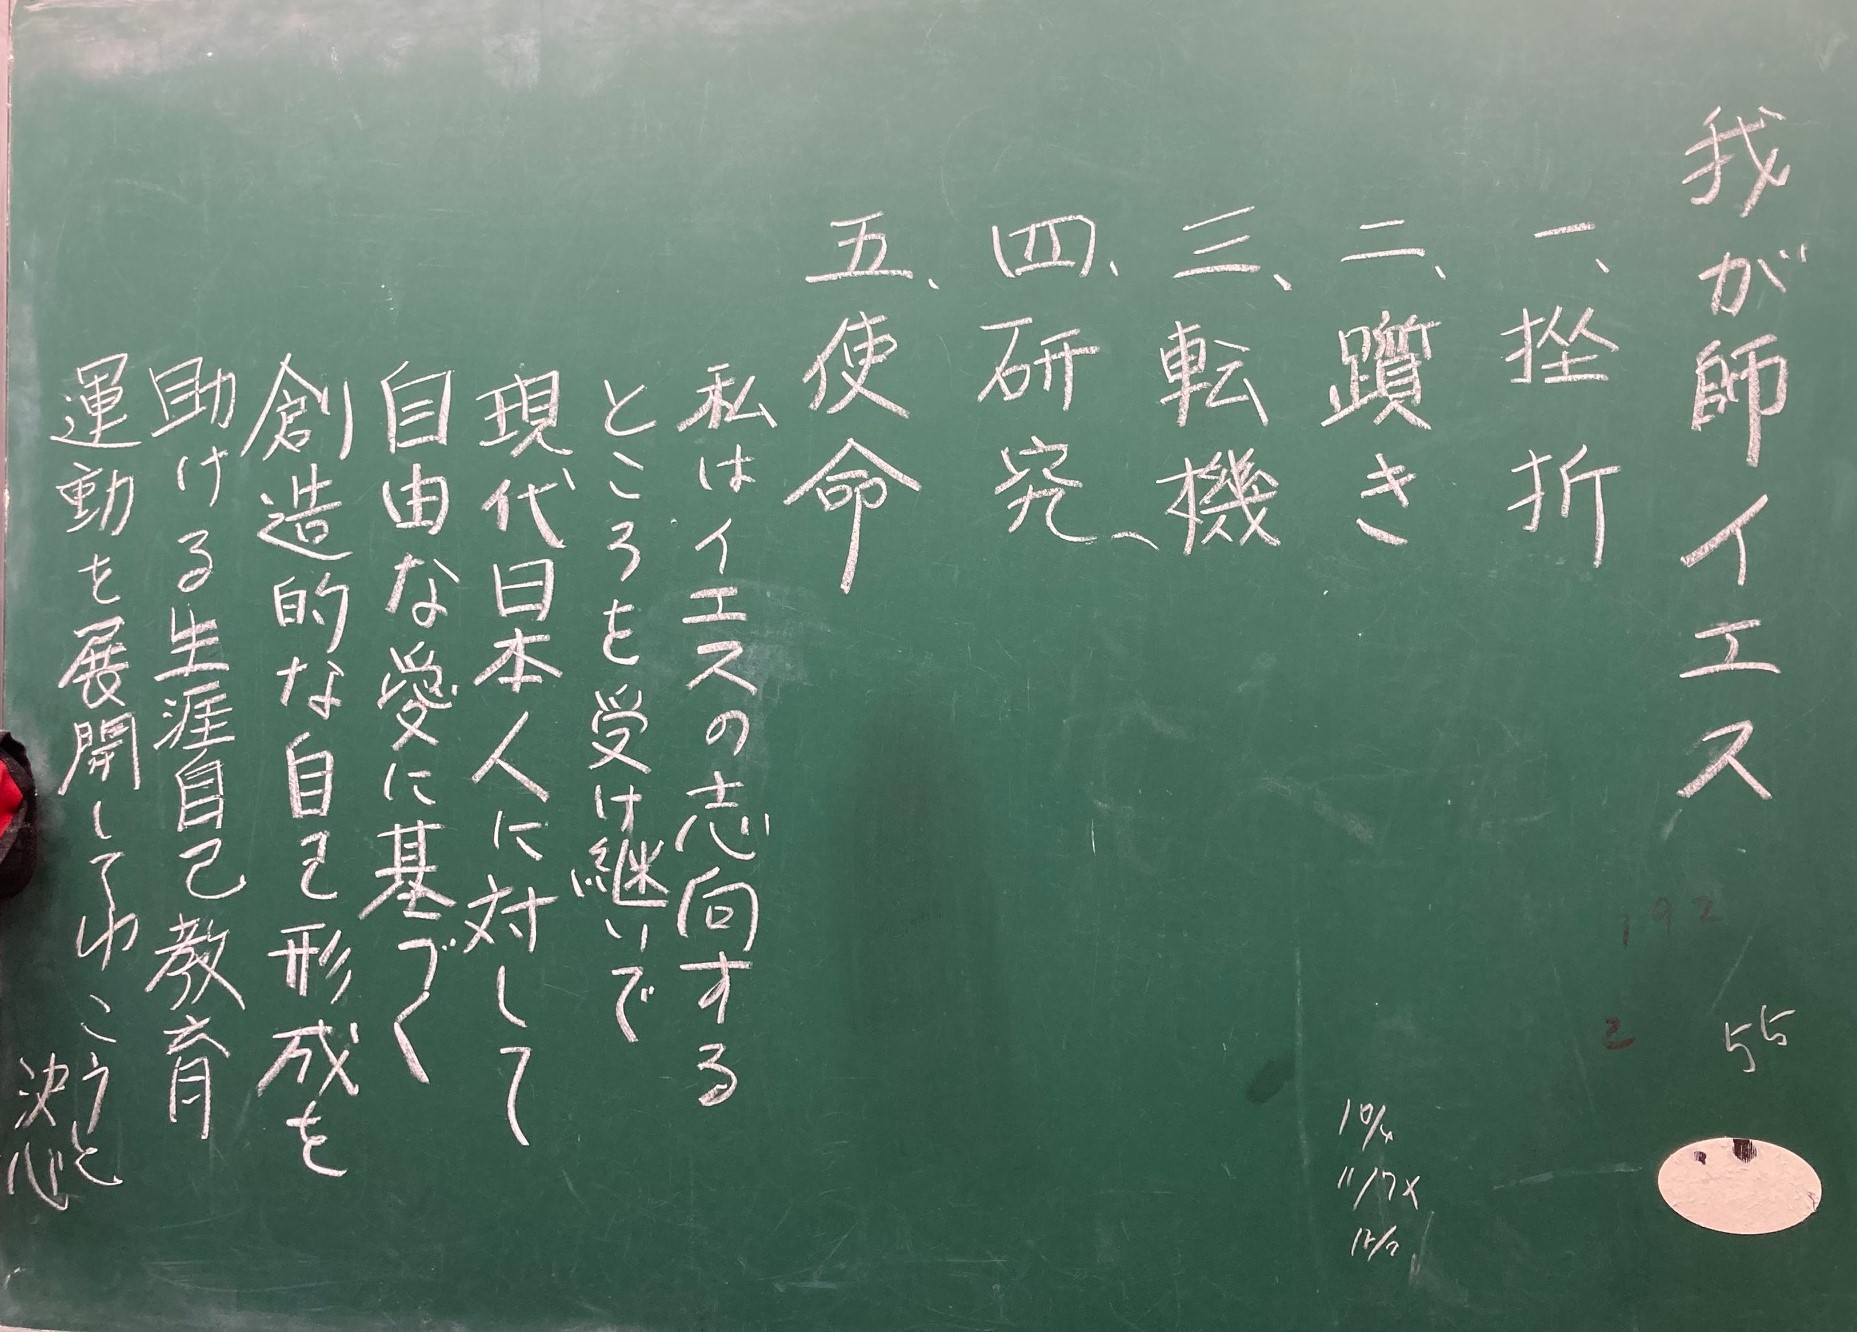 我が師イエス
一、挫折
二、躓き
三、転機
四、研究、
五、使命
私はイエスの志向する
ところを受け継いで
現代日本人に対して
自由な愛に基づく
創造的な自己形成を
助ける生涯自己教育
運動を展開してゆこうと
決心
192
2
55
10/4
11/7×